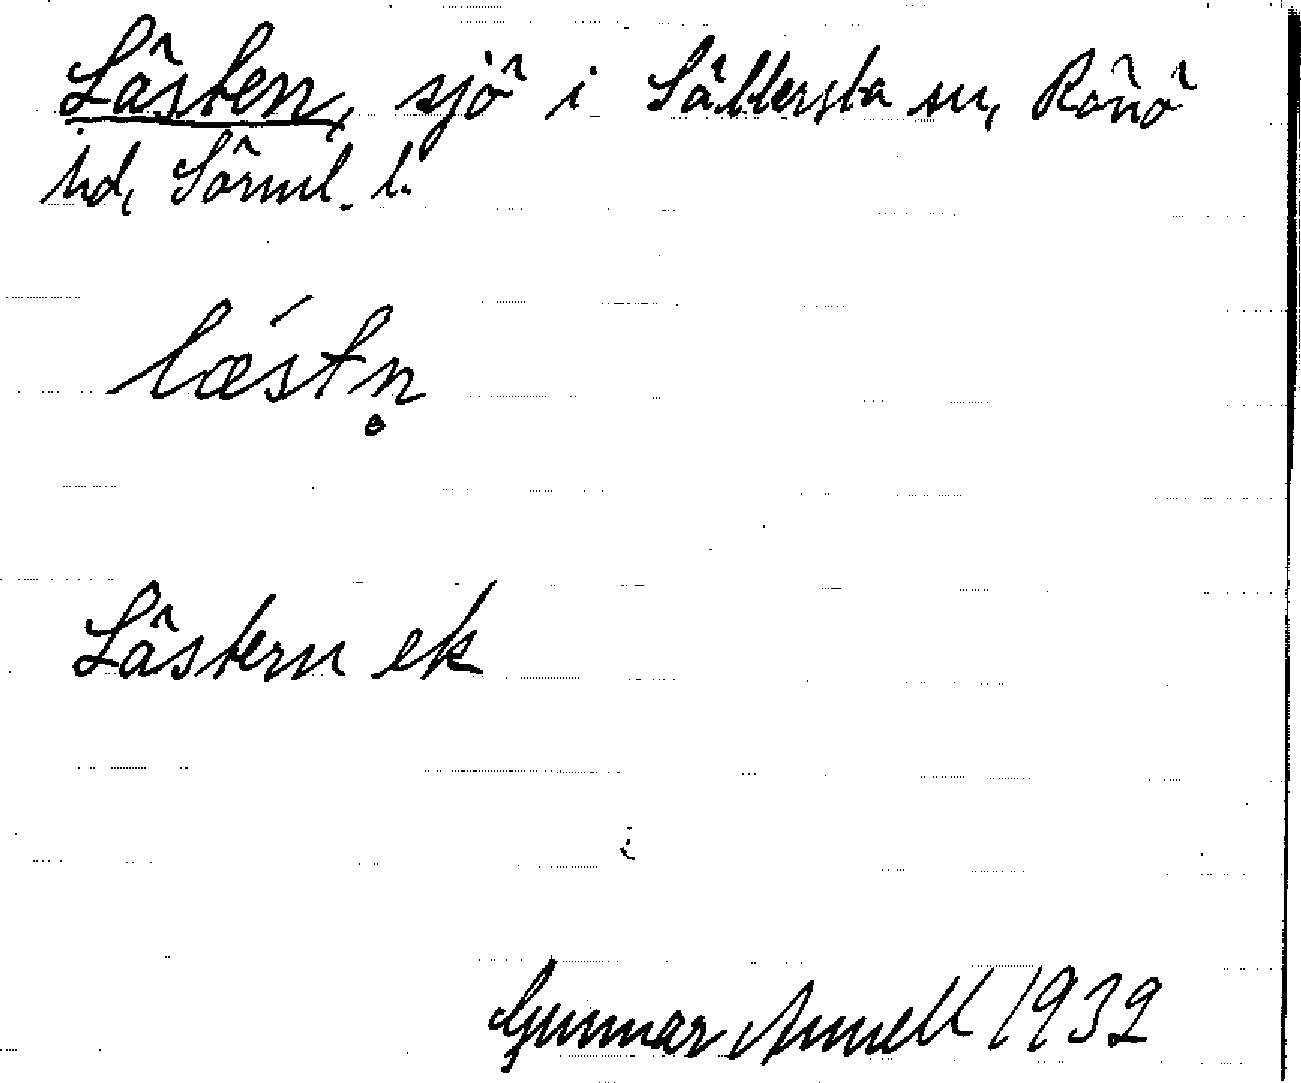 Lästen, sjö i Sättersta sn, Rönö
hd, Sörml. l.
lǽstn̥
Lästern ek
Gunnar Annell 1932